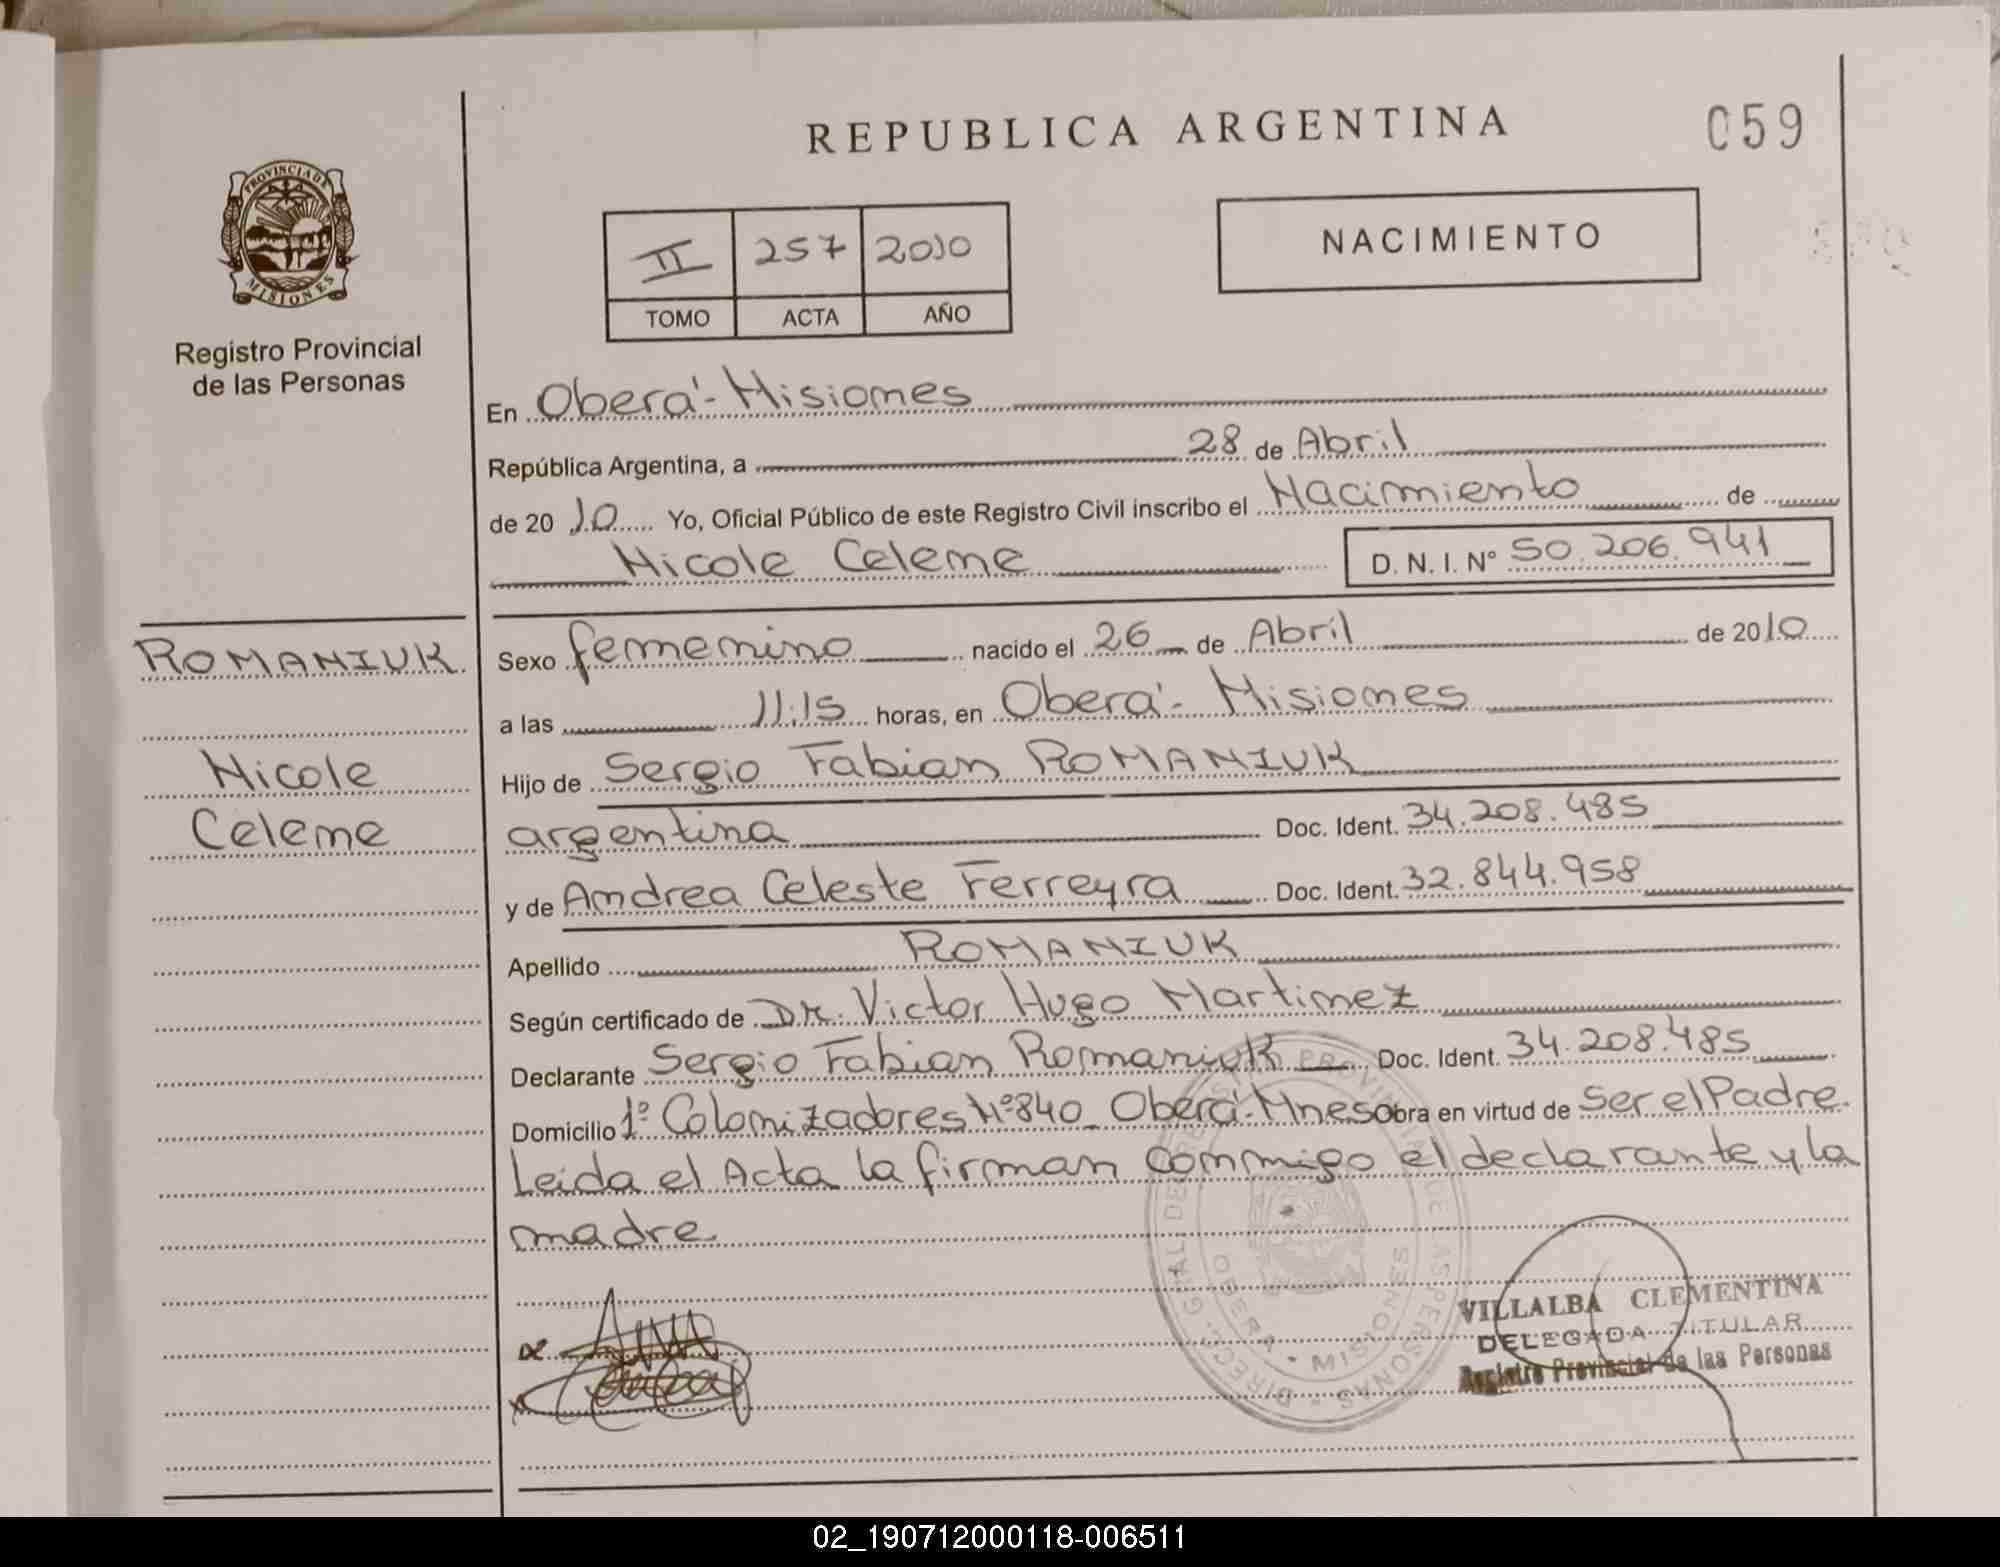 REPUBLICA ARGENTINA
059
PROVINCIA DE
MISIONES
Registro Provincial
de las Personas
II 257 2010
TOMO ACTA AÑO
NACIMIENTO
En Oberá - Misiones
República Argentina, a 28 de Abril
de 2010 Yo, Oficial Público de este Registro Civil inscribo el Nacimiento de
Nicole Celene D. N. I. Nº 50.206.941
ROMANIUK
Nicole
Celene
Sexo femenino nacido el 26 de Abril de 2010
a las 11:15 horas, en Oberá - Misiones
Hijo de Sergio Fabian ROMANIUK
argentina Doc. Ident. 34.208.485
y de Andrea Celeste Ferreyra Doc. Ident. 32.844.958
Apellido ROMANIUK
Según certificado de Dr. Victor Hugo Martinez
Declarante Sergio Fabian Romaniuk Doc. Ident. 34.208.485
Domicilio 1º Colonizadores Nº 840 Oberá - Mnes Obra en virtud de Ser el Padre.
Leida el Acta la firman conmigo el declarante y la
madre
DIRECC. GRAL. DE REGISTRO PROVINCIAL DE LAS PERSONAS
OBERA - MISIONES
VILLALBA CLEMENTINA
DELEGADA TITULAR
Registro Provincial de las Personas
02_190712000118-006511